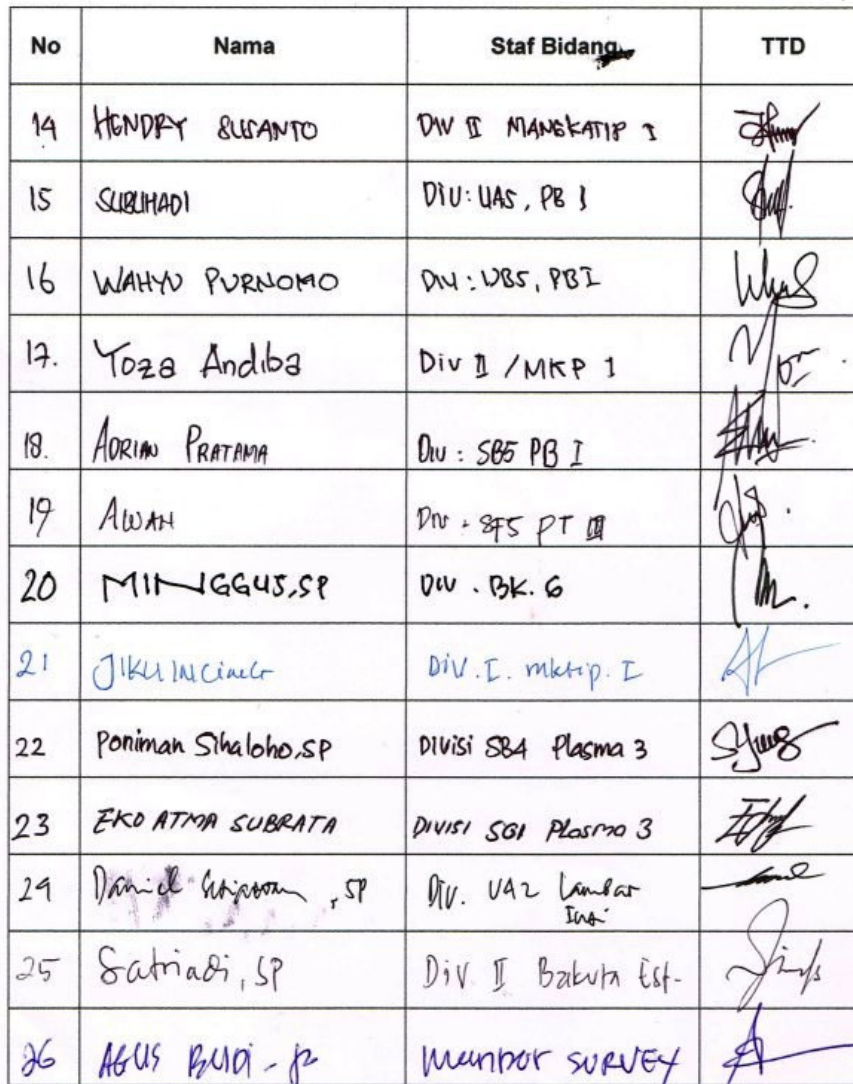 No Nama Staf Bidang TTD
14 HENDRY SUSANTO DIV II MANGKATIP I
15 SUBUHADI DIV: UA5, PB I
16 WAHYU PURNOMO DIV: UB5, PB I
17. Yoza Andiba Div II / MKP 1
18. ADRIAN PRATAMA DIV : SB5 PB I
19 AWAN DIV : SF5 PT III
20 MINGGUS, SP DIV . BK. 6
21 DIV. I. mktip. I
22 Poniman Sihaloho, SP DIVISI SB4 Plasma 3
23 EKO ATMA SUBRATA DIVISI SG1 Plasma 3
24 Daniel , SP Div. UA2 Lambar
Inti
25 Satriadi, SP Div II Bakuta Est.
26 AGUS BUDI - P MANDOR SURVEY